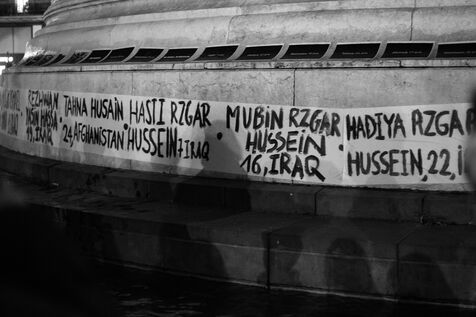 REZHWAN
YASIN HASSAN
19, IRAQ
TAHNA HUSAIN
24 AFGHANISTAN
HASTI RZGAR
HUSSEIN 7 IRAQ
MUBIN RZGAR
HUSSEIN
16, IRAQ
HADIYA RZGAR
HUSSEIN, 22, I